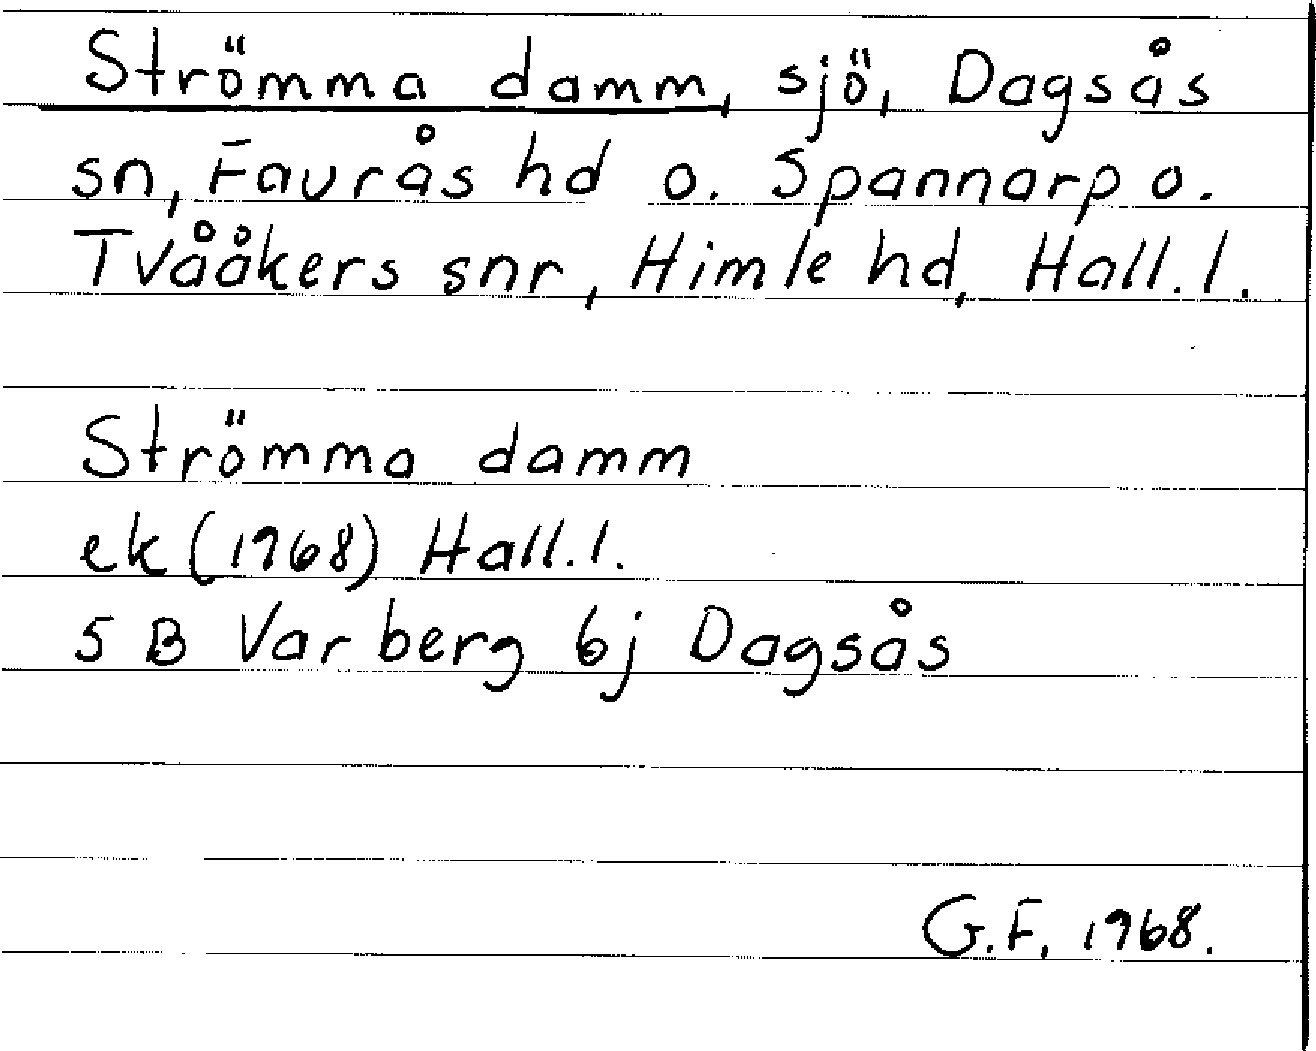 Strömma damm, sjö, Dagsås
sn, Faurås hd o. Spannarp o.
Tvååkers snr, Himle hd, Hall. l.
Strömma damm
ek (1968) Hall. l.
5 B Varberg 6j Dagsås
G.F. 1968.